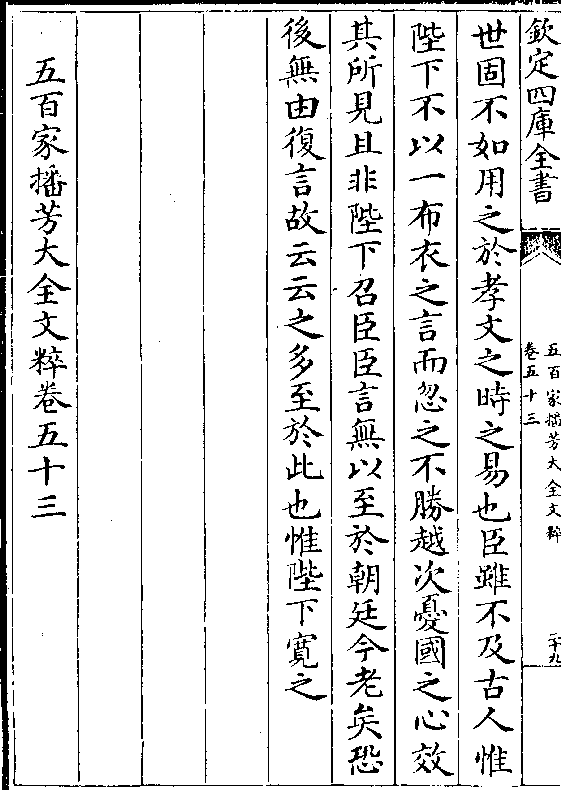 欽定四庫全書
五百家播芳大全文粹
卷五十三
二十九
世固不如用之於孝文之時之易也臣雖不及古人惟
陛下不以一布衣之言而忽之不勝越次憂國之心效
其所見且非陛下召臣臣言無以至於朝廷今老矣恐
後無由復言故云云之多至於此也惟陛下寛之
五百家播芳大全文粹卷五十三